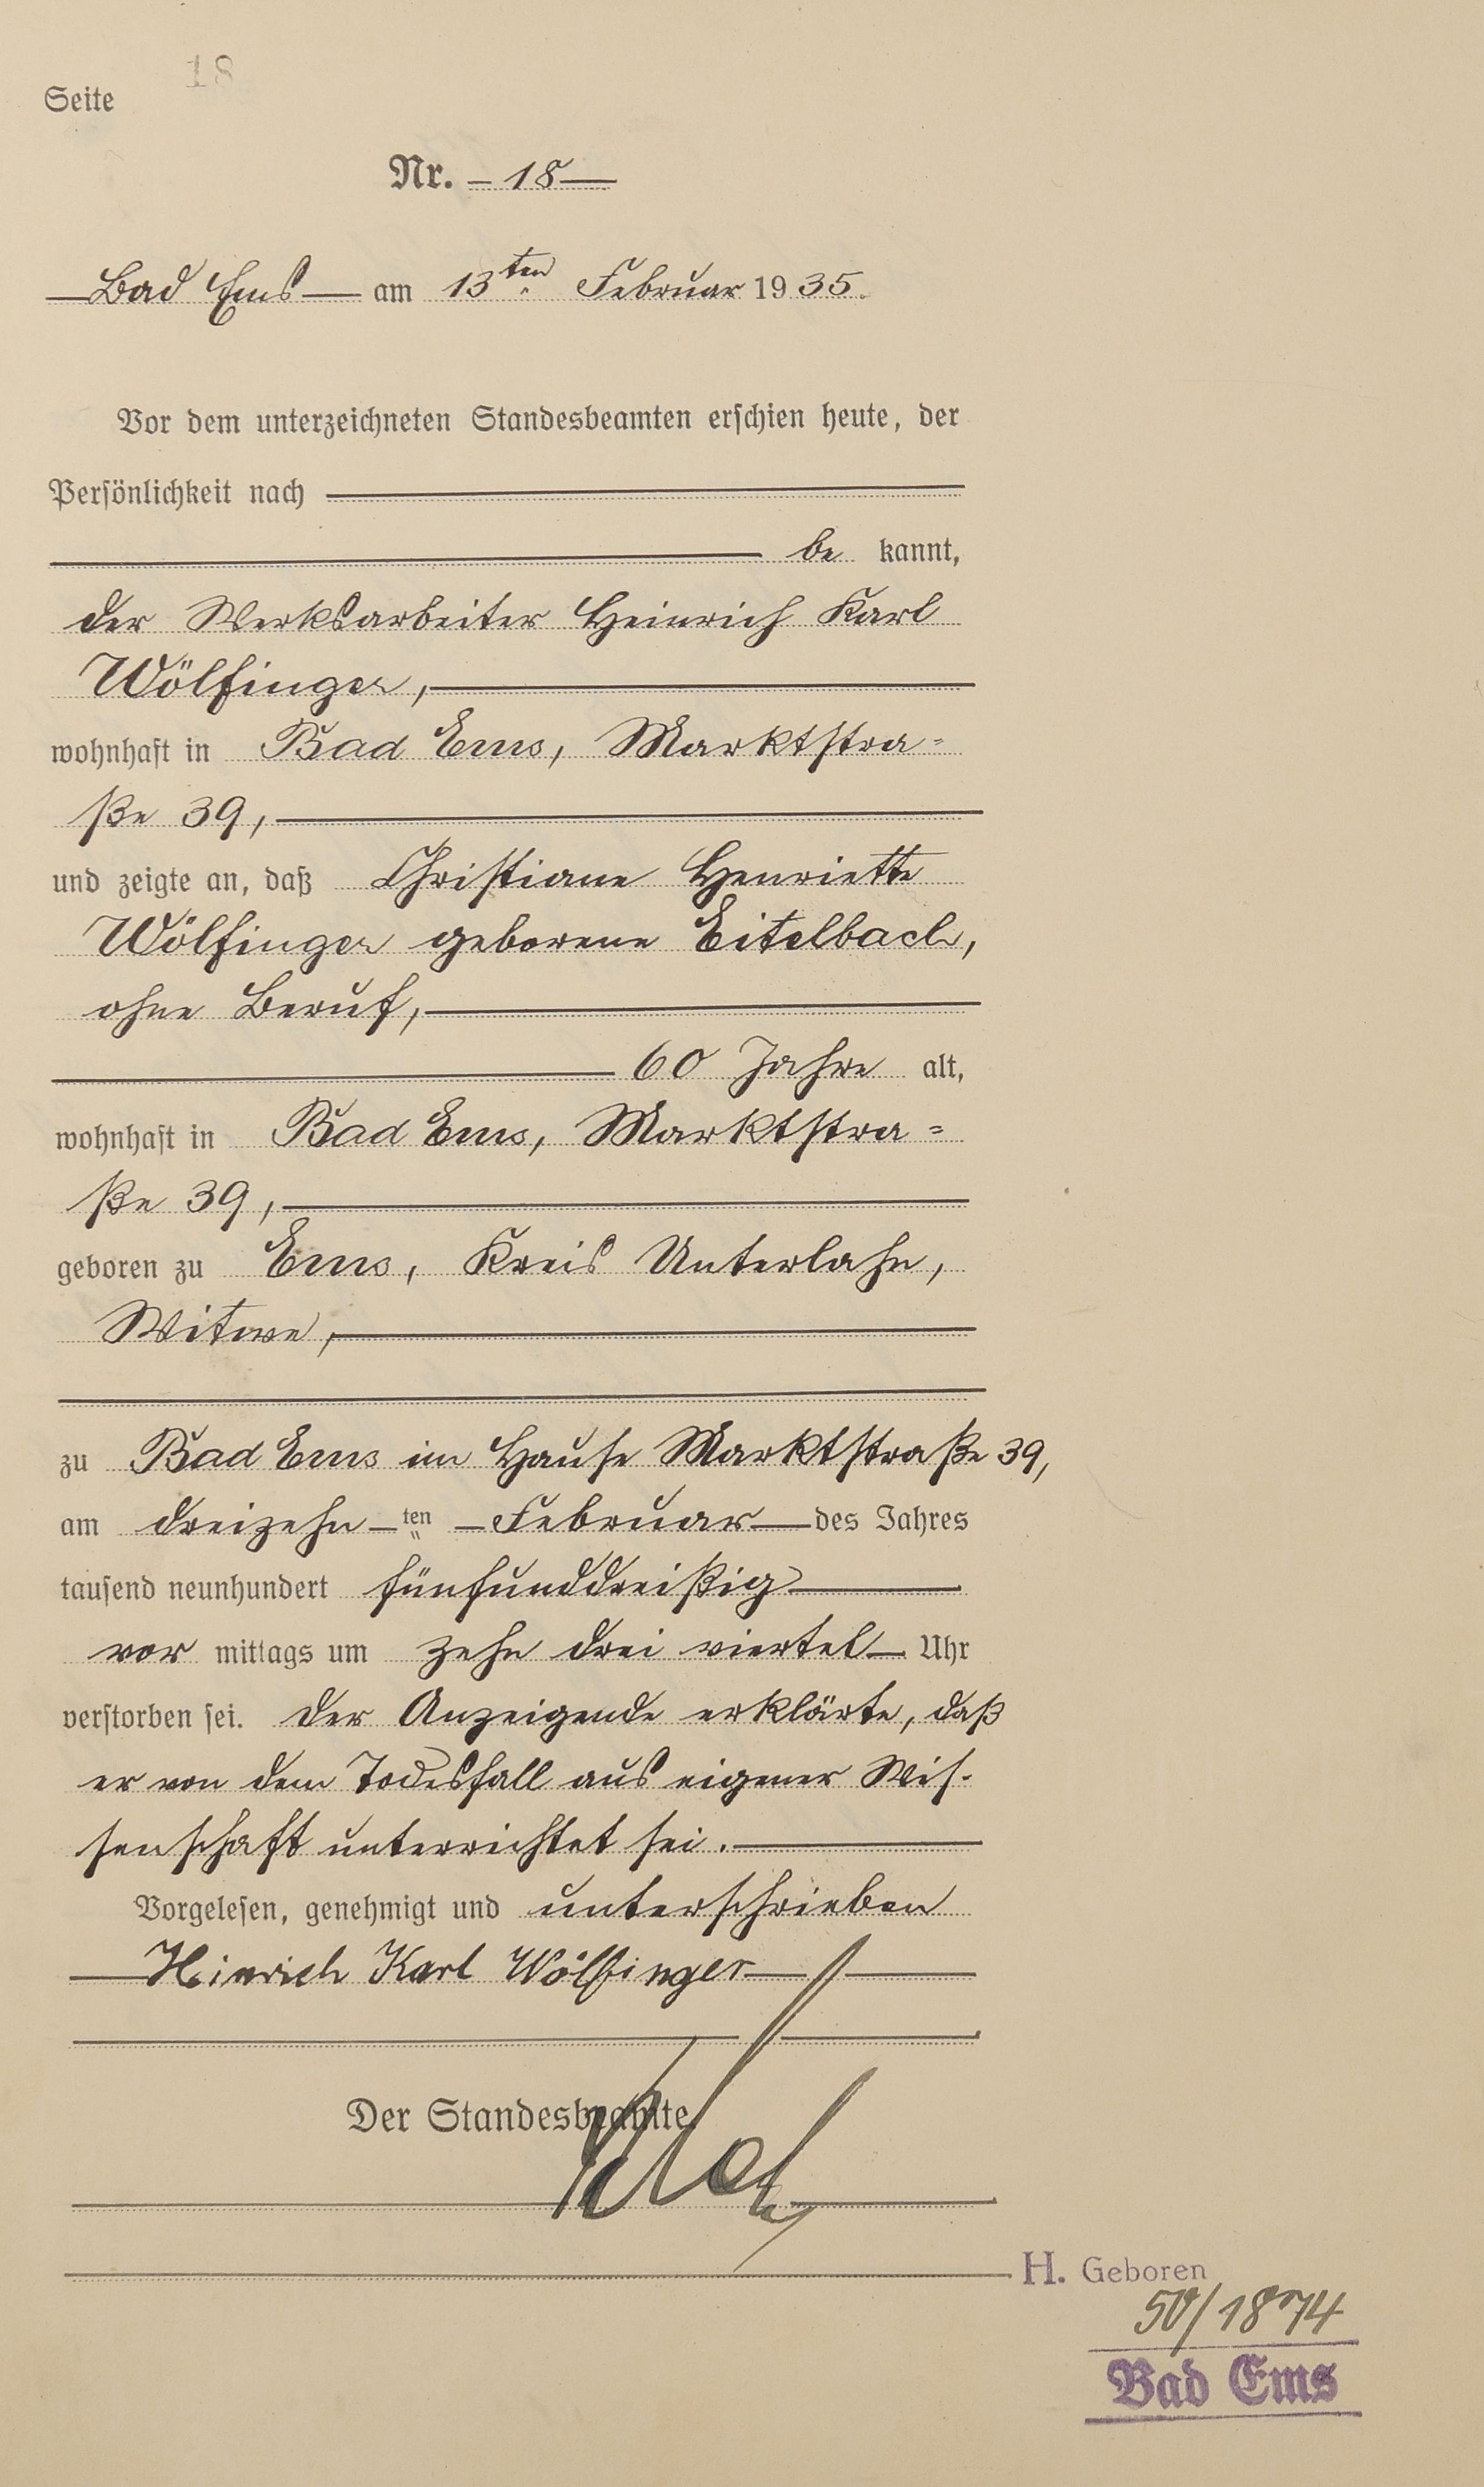 18
Seite
Nr. – 18 —
— Bad Ems — am 13ten Februar 1935.
Vor dem unterzeichneten Standesbeamten erschien heute, der
Persönlichkeit nach
be kannt,
der Werksarbeiter Heinrich Karl
Wölfinger,
wohnhaft in Bad Ems, Marktstra=
ße 39,
und zeigte an, daß Christiane Henriette
Wölfinger geborene Eitelbach,
ohne Beruf,
60 Jahre alt,
wohnhaft in Bad Ems, Marktstra=
ße 39,
geboren zu Ems, Kreis Unterlahn,
Witwe,
zu Bad Ems im Hause Marktstraße 39,
am dreizehn – ten – Februar — des Jahres
tausend neunhundert fünfunddreißig
vor mittags um zehn drei viertel – Uhr
verstorben sei. Der Anzeigende erklärte, daß
er von dem Todesfall aus eigener Wis-
senschaft unterrichtet sei.
Vorgelesen, genehmigt und unterschrieben
Heinrich Karl Wölfinger
Der Standesbeamte
H. Geboren
50/1874
Bad Ems